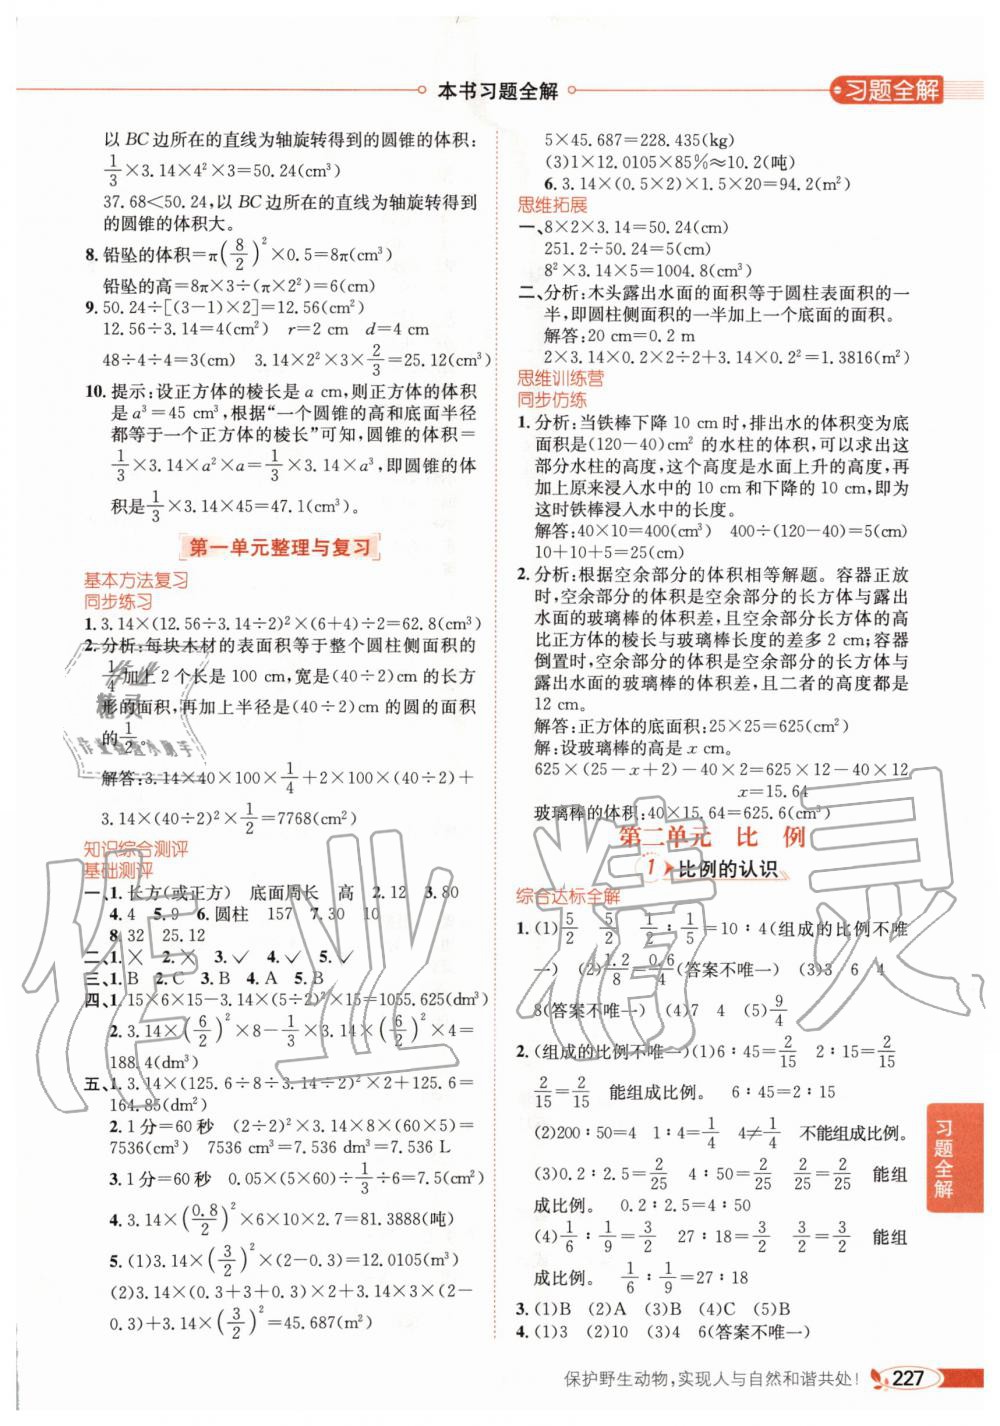 本书习题全解
习题全解
以BC边所在的直线为轴旋转得到的圆锥的体积:
1/3×3.14×4²×3=50.24(cm³)
37.68<50.24,以BC边所在的直线为轴旋转得到
的圆锥的体积大。
8.铅坠的体积=π(8/2)²×0.5=8π(cm³)
铅坠的高=8π×3÷(π×2²)=6(cm)
9.50.24÷[(3-1)×2]=12.56(cm²)
12.56÷3.14=4(cm²) r=2 cm d=4 cm
48÷4÷4=3(cm) 3.14×2²×3×2/3=25.12(cm³)
10.提示:设正方体的棱长是a cm,则正方体的体积
是a³=45 cm³,根据“一个圆锥的高和底面半径
都等于一个正方体的棱长”可知,圆锥的体积=
1/3×3.14×a²×a=1/3×3.14×a³,即圆锥的体
积是1/3×3.14×45=47.1(cm³)。
第一单元整理与复习
基本方法复习
同步练习
1.3.14×(12.56÷3.14÷2)²×(6+4)÷2=62.8(cm³)
2.分析:每块木材的表面积等于整个圆柱侧面积的
1/4加上2个长是100 cm,宽是(40÷2)cm的长方
形的面积,再加上半径是(40÷2)cm的圆的面积
的1/2。
解答:3.14×40×100×1/4+2×100×(40÷2)+
3.14×(40÷2)²×1/2=7768(cm²)
知识综合测评
基础测评
一、1.长方(或正方) 底面周长 高 2.12 3.80
4.4 5.9 6.圆柱 157 7.30 10
8.32 25.12
二、1.× 2.× 3.✓ 4.✓ 5.✓
三、1.B 2.C 3.B 4.A 5.B
四、1.15×6×15-3.14×(5÷2)²×15=1055.625(dm³)
2.3.14×(6/2)²×8-1/3×3.14×(6/2)²×4=
188.4(dm³)
五、1.3.14×(125.6÷8÷3.14÷2)²×2+125.6=
164.85(dm²)
2.1分=60秒 (2÷2)²×3.14×8×(60×5)=
7536(cm³) 7536 cm³=7.536 dm³=7.536 L
3.1分=60秒 0.05×(5×60)÷1/3÷6=7.5(cm²)
4.3.14×(0.8/2)²×6×10×2.7=81.3888(吨)
5.(1)3.14×(3/2)²×(2-0.3)=12.0105(m³)
(2)3.14×(0.3+3+0.3)×2+3.14×3×(2-
0.3)+3.14×(3/2)²=45.687(m²)
5×45.687=228.435(kg)
(3)1×12.0105×85%≈10.2(吨)
6.3.14×(0.5×2)×1.5×20=94.2(m²)
思维拓展
一、8×2×3.14=50.24(cm)
251.2÷50.24=5(cm)
8²×3.14×5=1004.8(cm³)
二、分析:木头露出水面的面积等于圆柱表面积的一
半,即圆柱侧面积的一半加上一个底面的面积。
解答:20 cm=0.2 m
2×3.14×0.2×2÷2+3.14×0.2²=1.3816(m²)
思维训练营
同步仿练
1.分析:当铁棒下降10 cm时,排出水的体积变为底
面积是(120-40)cm²的水柱的体积,可以求出这
部分水柱的高度,这个高度是水面上升的高度,再
加上原来浸入水中的10 cm和下降的10 cm,即为
这时铁棒浸入水中的长度。
解答:40×10=400(cm³) 400÷(120-40)=5(cm)
10+10+5=25(cm)
2.分析:根据空余部分的体积相等解题。容器正放
时,空余部分的体积是空余部分的长方体与露出
水面的玻璃棒的体积差,且空余部分长方体的高
比正方体的棱长与玻璃棒长度的差多2 cm;容器
倒置时,空余部分的体积是空余部分的长方体与
露出水面的玻璃棒的体积差,且二者的高度都是
12 cm。
解答:正方体的底面积:25×25=625(cm²)
解:设玻璃棒的高是x cm。
625×(25-x+2)-40×2=625×12-40×12
x=15.64
玻璃棒的体积:40×15.64=625.6(cm³)
第二单元 比 例
1 比例的认识
综合达标全解
1.(1)5/2 5/2 1/2∶1/5=10∶4(组成的比例不唯
一) (2)1.2/8=0.6/4(答案不唯一) (3)3 6 4
8(答案不唯一) (4)7 4 (5)9/4
2.(组成的比例不唯一)(1)6∶45=2/15 2∶15=2/15
2/15=2/15 能组成比例。 6∶45=2∶15
(2)200∶50=4 1∶4=1/4 4≠1/4 不能组成比例。
(3)0.2∶2.5=2/25 4∶50=2/25 2/25=2/25 能组
成比例。 0.2∶2.5=4∶50
(4)1/6∶1/9=3/2 27∶18=3/2 3/2=3/2 能组
成比例。 1/6∶1/9=27∶18
3.(1)B (2)A (3)B (4)C (5)B
4.(1)3 (2)10 (3)4 6(答案不唯一)
习题全解
保护野生动物,实现人与自然和谐共处!
227
作业精灵